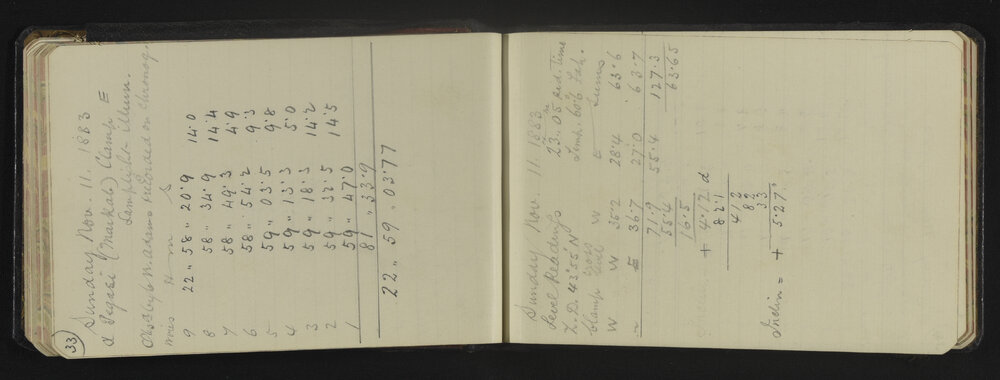 33
Sunday Nov. 11. 1883
α Pegasi (Markab) Clamp E
Lamplight Illum.
Obs'd by C. W. Adams recorded on chronog.
Wires H m S
9 22 „ 58 „ 20.9 14.0
8 58 „ 34.9 14.4
7 58 „ 49.3 4.9
6 58 „ 54.2 9.3
5 59 „ 03.5 9.8
4 59 „ 13.3 5.0
3 59 „ 18.3 14.2
2 59 „ 32.5 14.5
1 59 „ 47.0
81 „ 33.9
22 „ 59 „ 03.77
Sunday Nov. 11. 1883
Level Readings 23.05 Sid. Time
Z.D. 43°55' N Temp. 60.6 Fah.
Clamp W E Sums
W W 35.2 28.4 63.6
E 36.7 27.0 63.7
71.9 55.4 127.3
55.4 63.65
16.5
+ 4.12 d
821
412
82
33
Inclin = + 5.27"